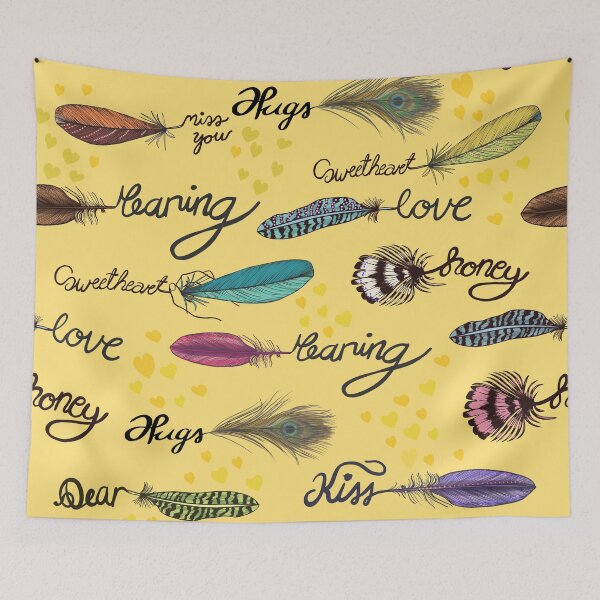 Hugs
miss
you
Sweetheart
leaning love
Sweetheart honey
love leaning
honey Hugs
Dear Kiss